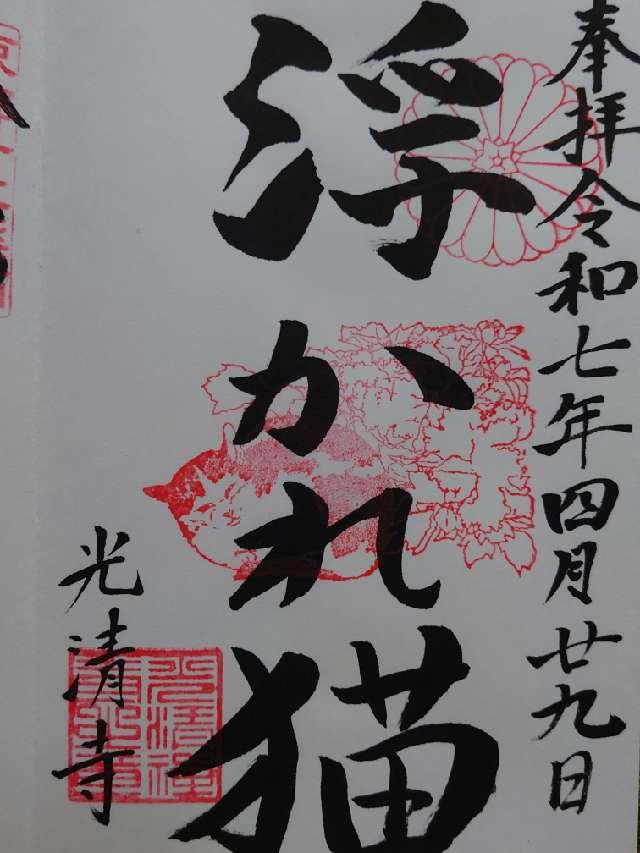 奉拝令和七年四月廿九日
浮かれ猫
光清寺